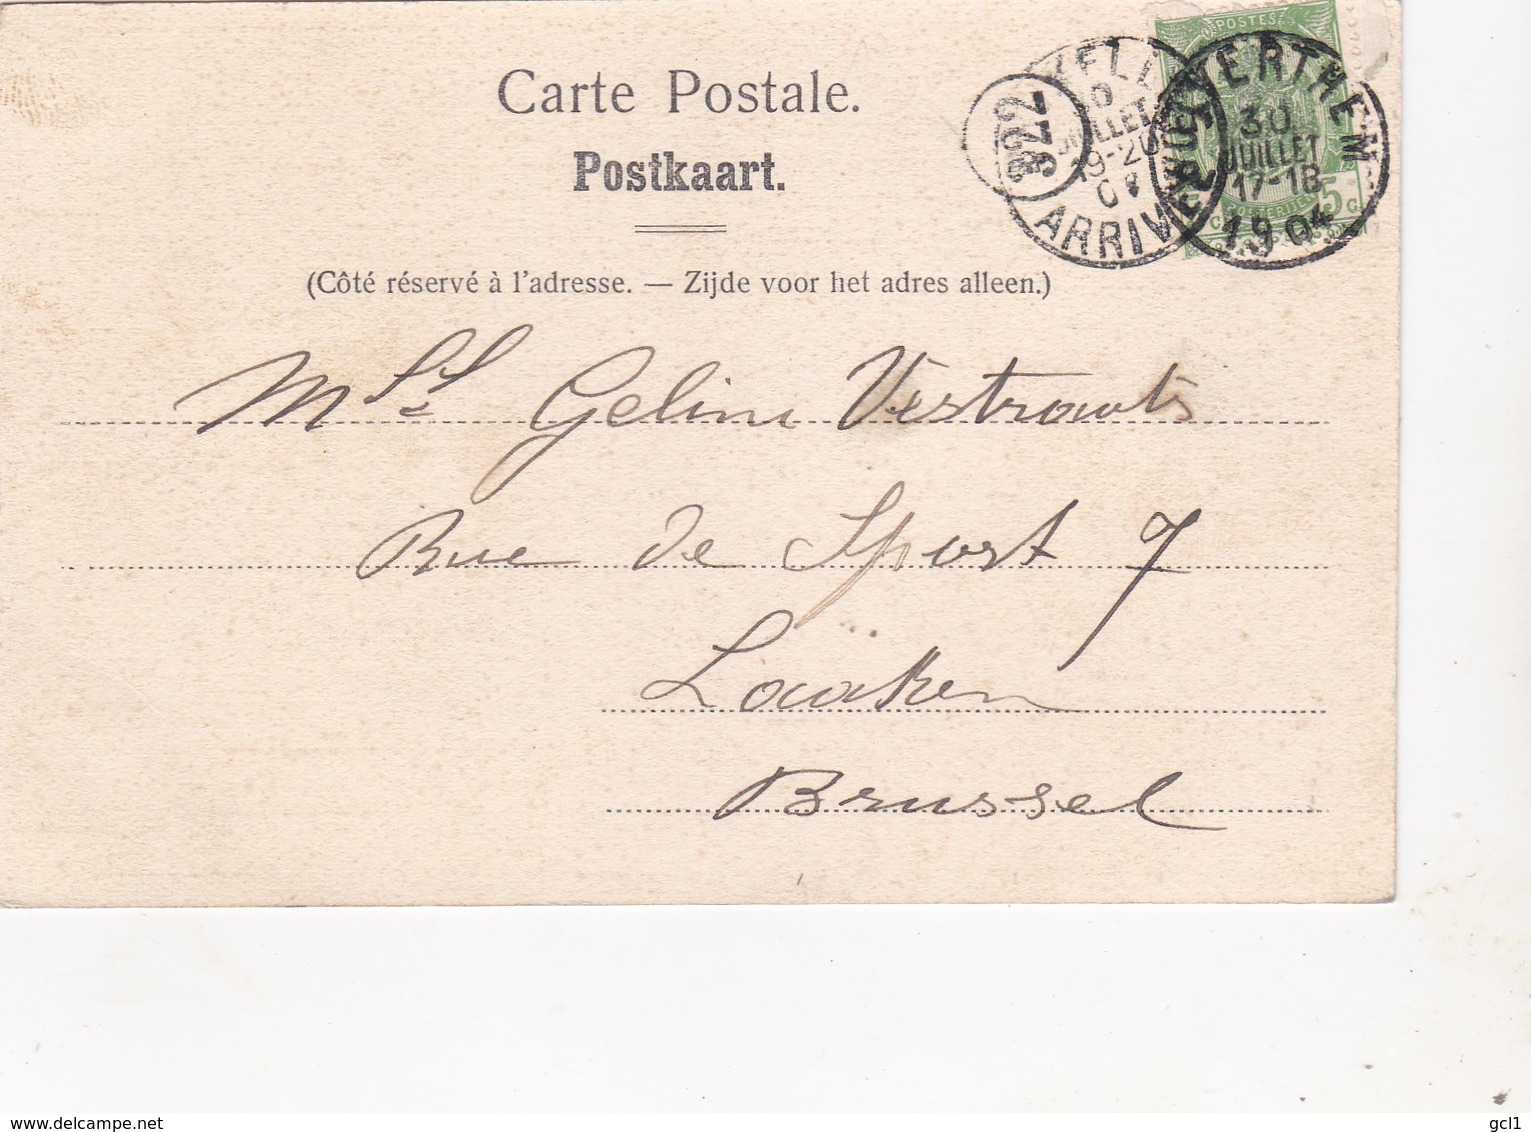 Carte Postale.
Postkaart.
(Côté réservé à l'adresse. — Zijde voor het adres alleen.)
POSTES
5 c
322
JUILLET
19-20
ARRIVÉE
30
JUILLET
17-18
1904
Mll Gelina Verstraets
Rue de Sport 7
Laaken
Brussel
www.delcampe.net
gcl1